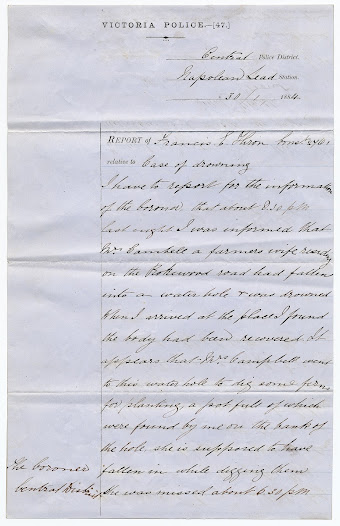 VICTORIA POLICE.—[47.]
Central Police District.
Napoleon Lead Station
30/1/1884.
REPORT of Francis E. Thron Const 2961
relative to Case of drowning
I have to report for the information
of the coroner that about 8.30 pm
last night I was informed that
Mrs Camdell a farmers wife residing
on the Rokewood road had fallen
into a water hole & was drowned
When I arrived at the place I found
the body had been recovered It
appears that Mrs Campbell went
to this water hole to dig some ferns
for planting, a pot full of which
were found by me on the bank of
the hole, she is supposed to have
fallen in while digging them
She was missed about 6.30 pm
The Coroner
Central District